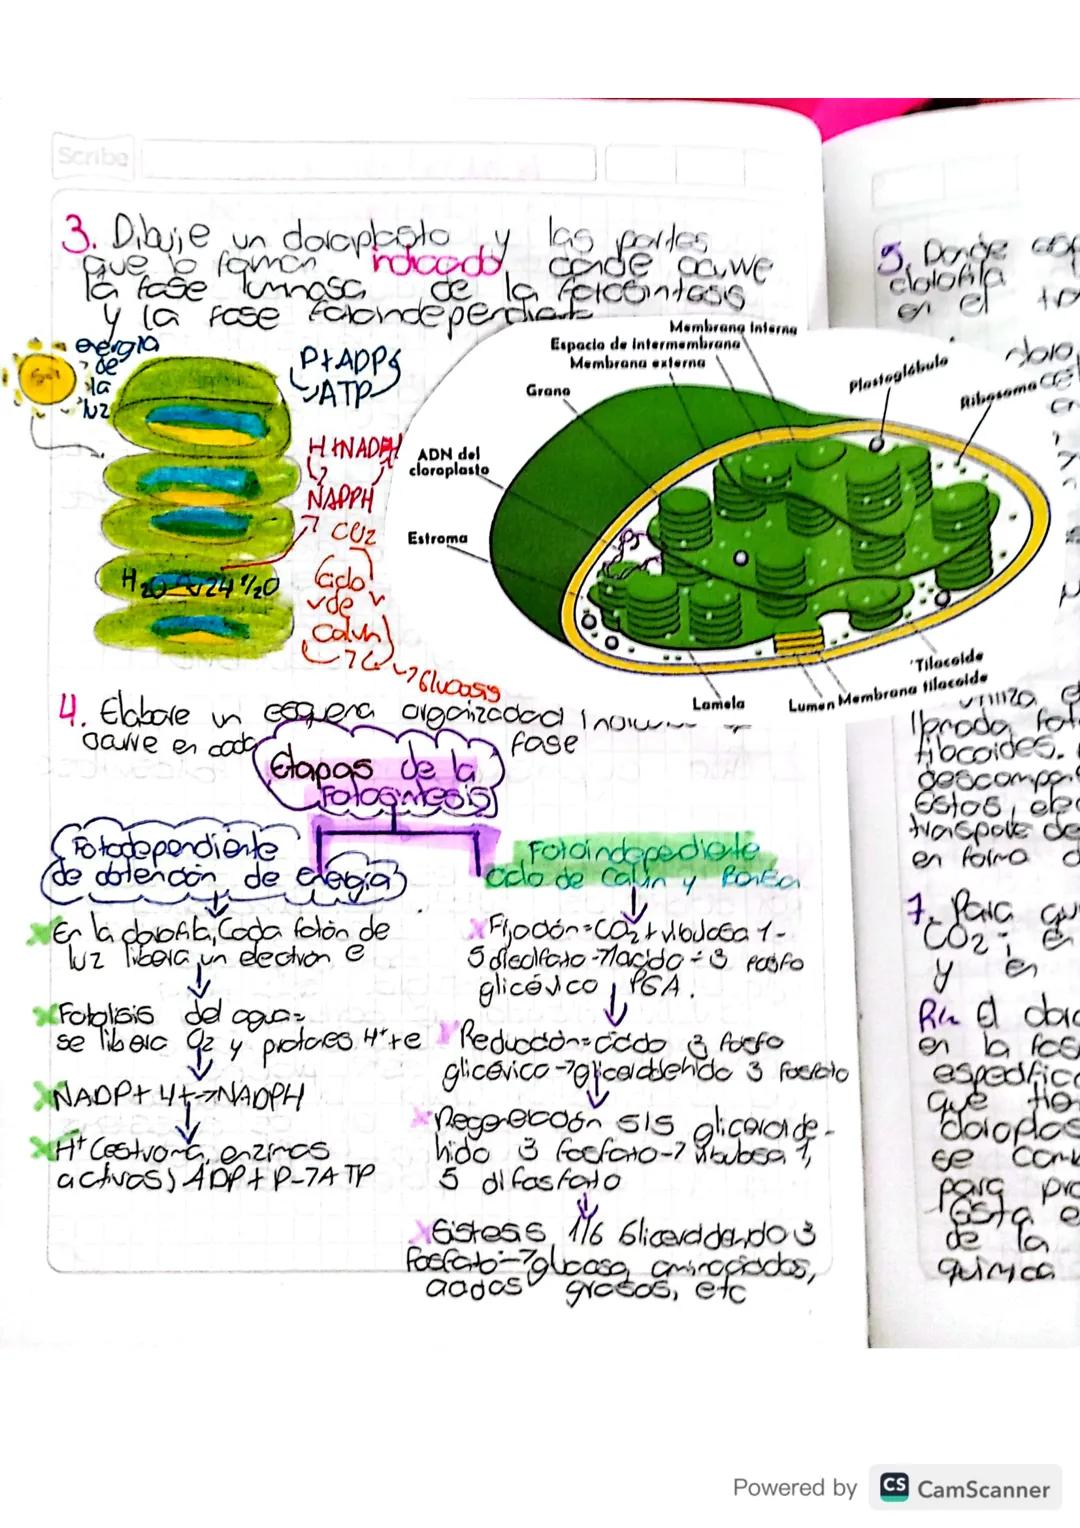 Scribe
3. Dibuje un cloroplasto y las partes
que lo forman indicado donde ocurre
la fase luminosa de la fotosintesis
y la fase fotoindependiente
energia
de
la
luz
Sol
P+ADP
ATP
H+NADPH
NADPH
CO2
Ciclo
de
Calvin
Glucosis
H2O
Membrana interna
Espacio de intermembrana
Membrana externa
Grano
ADN del
cloroplasto
Estroma
Plastoglóbulo
Ribosoma
Tilacoide
Membrana tilacoide
Lumen
Lamela
4. Elabore un esquema organizado
ocurre en cada fase
Etapas de la
Fotosintesis
Fotodependiente
de obtención de energia
X En la clorofila, Cada fotón de
luz libera un electron e
X Fotolisis del agua=
se libera O2 y protones H++e
X NADP+ H+→NADPH
X H+ (estroma, enzimas
activas) ADP+P→ATP
Fotoindependiente
Ciclo de Calvin y
X Fijación=CO2+ribulosa 1-
5 difosfato→acido 3 fosfo
glicérico PGA.
X Reducción=acido 3 fosfo
glicérico→gliceraldehido 3 fosfato
X Regeneración 5/5 gliceralde-
hido 3 fosfato→ribulosa 1,
5 difosfato
X Sistesis 1/6 Gliceraldehido 3
fosfato→glucosa, aminoácidos,
acidos grasos, etc
5. Donde
clorofila
en el
utiliza
llamada
tilacoides.
descompon
Estos,
transporte de
en forma
7. Para
CO2
y en
R= El
en la fas
especifica
que
cloroplas
se
para
Esta e
de la
quimica
Powered by CS CamScanner